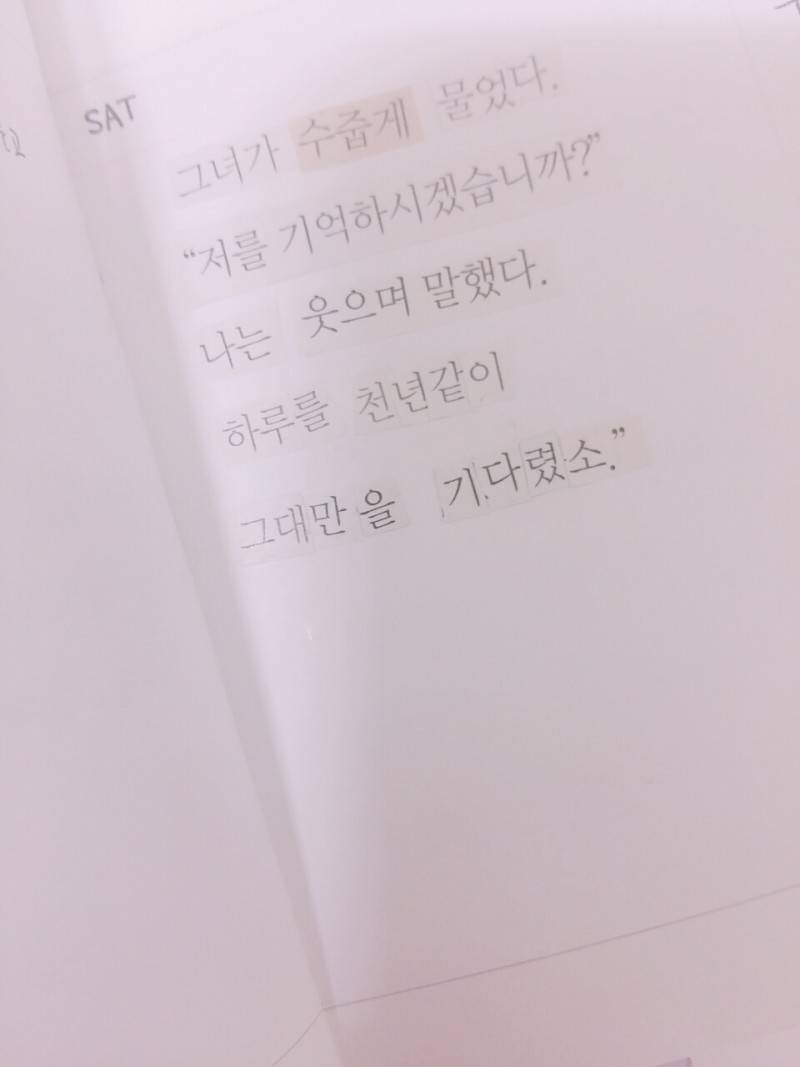 SAT
그녀가 수줍게 물었다.
“저를 기억하시겠습니까?”
나는 웃으며 말했다.
하루를 천년같이
그대만을 기다렸소.”